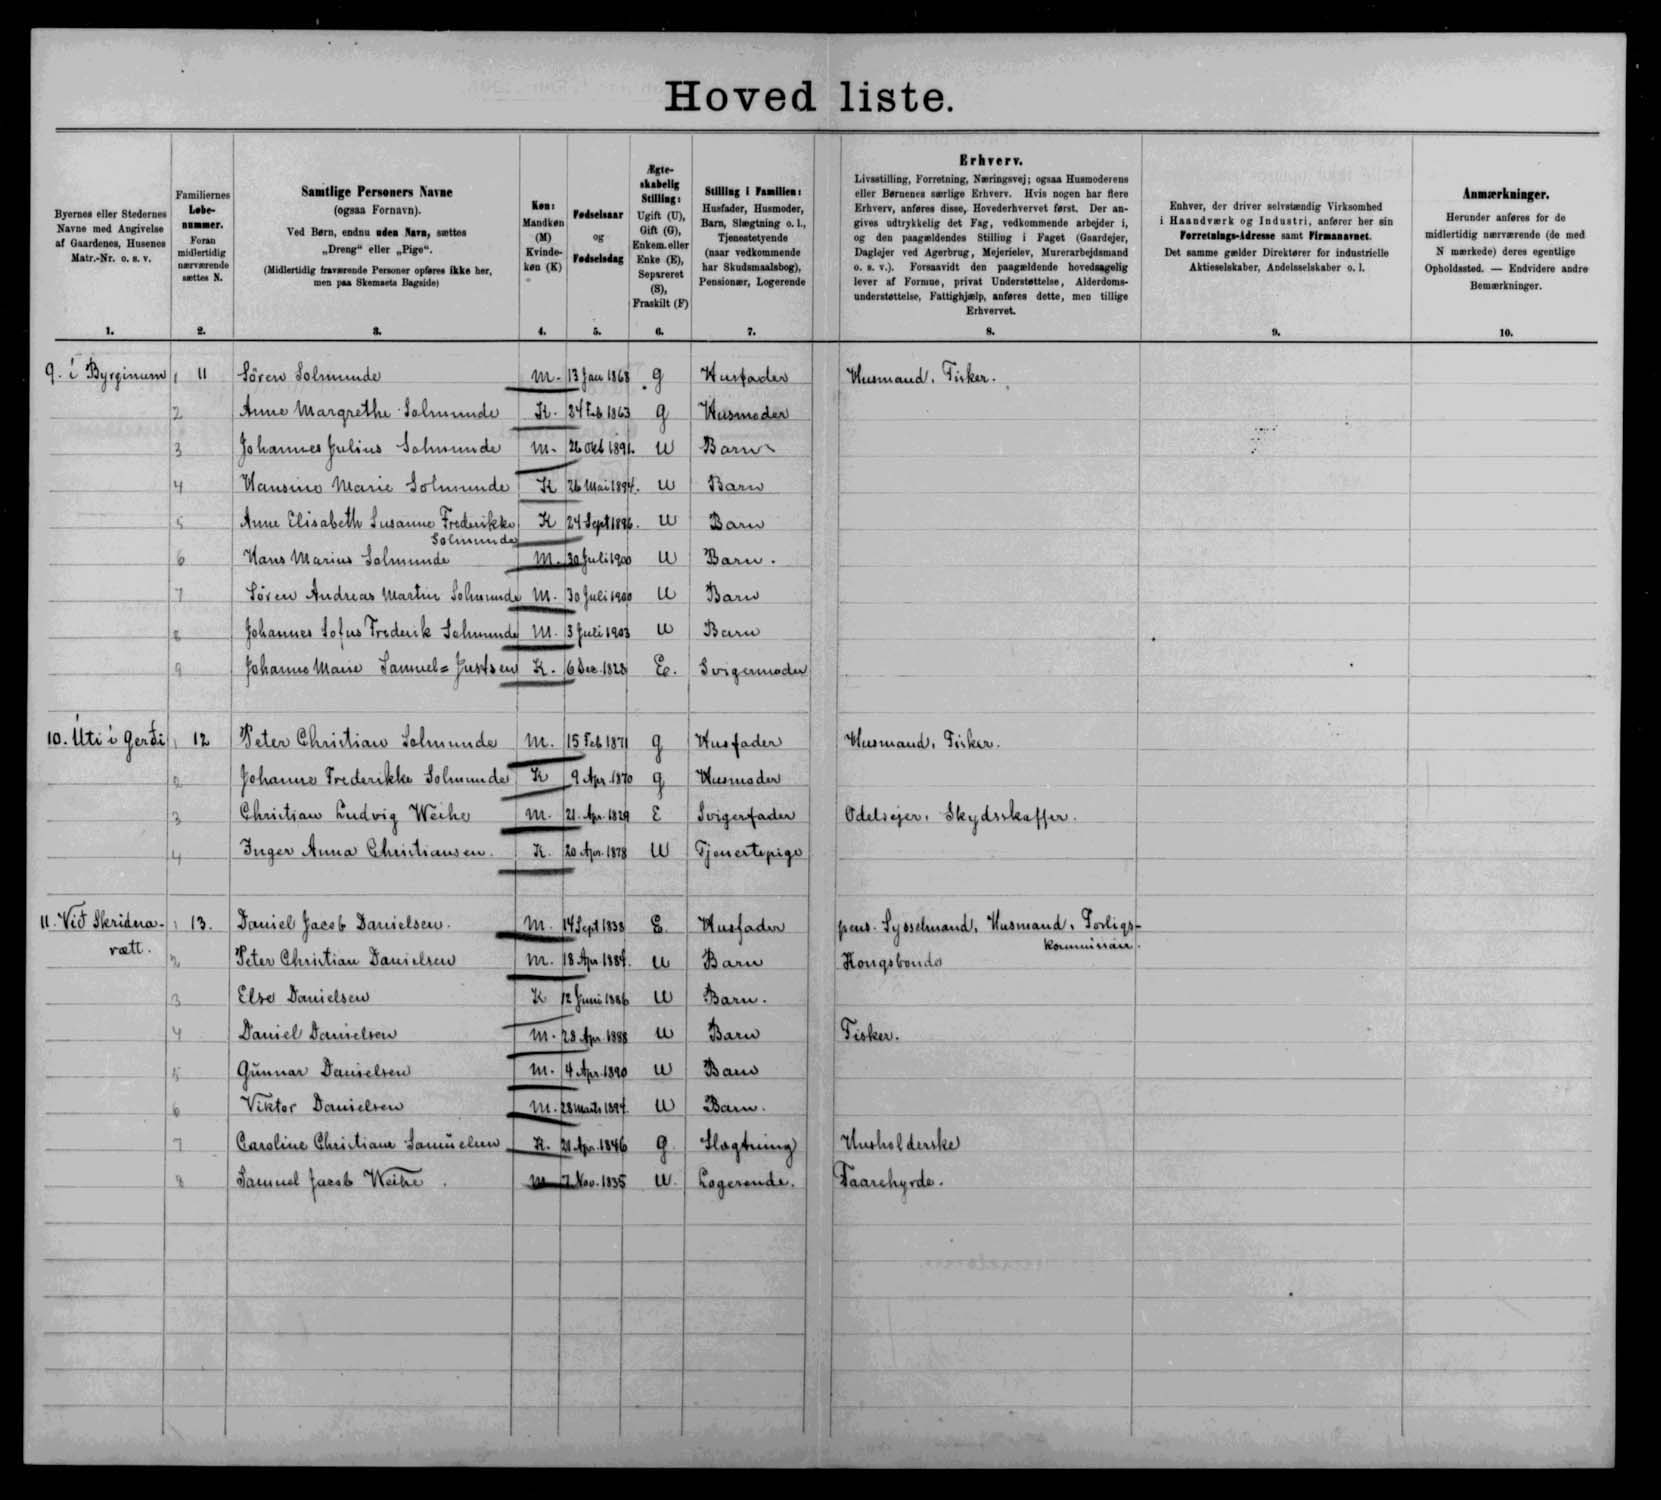 Hoved liste.
Byernes eller Stedernes Navne med Angivelse af Gaardenes, Husenes Matr.-Nr. o. s. v.
Familiernes Løbenummer. Foran midlertidig nærværende sættes N.
Samtlige Personers Navne
(ogsaa Fornavn).
Ved Børn, endnu uden Navn, sættes
„Dreng“ eller „Pige“.
(Midlertidig fraværende Personer opføres ikke her,
men paa Skemaets Bagside)
Køn: Mandkøn (M) Kvindekøn (K)
Fødselsaar og Fødselsdag
Ægteskabelig Stilling: Ugift (U), Gift (G), Enkem. eller Enke (E), Separeret (S), Fraskilt (F)
Stilling i Familien: Husfader, Husmoder, Barn, Slægtning o. l., Tjenestetyende (naar vedkommende har Skudsmaalsbog), Pensionær, Logerende
Erhverv.
Livsstilling, Forretning, Næringsvej; ogsaa Husmoderens
eller Børnenes særlige Erhverv. Hvis nogen har flere
Erhverv, anføres disse, Hovederhvervet først. Der an-
gives udtrykkelig det Fag, vedkommende arbejder i,
og den paagældendes Stilling i Faget (Gaardejer,
Daglejer ved Agerbrug, Mejerielev, Murerarbejdsmand
o. s. v.). Forsaavidt den paagældende hovedsagelig
lever af Formue, privat Understøttelse, Alderdoms-
understøttelse, Fattighjælp, anføres dette, men tillige
Erhvervet.
Enhver, der driver selvstændig Virksomhed
i Haandværk og Industri, anfører her sin
Forretnings-Adresse samt Firmanavnet.
Det samme gælder Direktører for industrielle
Aktieselskaber, Andelsselskaber o. l.
Anmærkninger.
Herunder anføres for de
midlertidig nærværende (de med
N mærkede) deres egentlige
Opholdssted. — Endvidere andre
Bemærkninger.
1. 2. 3. 4. 5. 6. 7. 8. 9. 10.
9. í Byrginum 1 11 Sören Solmunde M. 13 Jan 1868 g Husfader Husmand, Fisker.
2 Anne Margrethe Solmunde K. 24 Feb 1863 g Husmoder
3 Johannes Julius Solmunde M. 26 Okt 1891. U Barn
4 Hansine Marie Solmunde K 26 Mai 1894. U Barn
5 Anne Elisabeth Susanne Frederikke K 24 Sept 1896. U Barn
Solmunde
6 Hans Marius Solmunde M. 30 Juli 1900 U Barn.
7 Sören Andreas Martin Solmunde M. 30 Juli 1900 U Barn
8 Johannes Sofus Frederik Solmunde M. 3 Juli 1903 U Barn
9 Johanne Marie Samuel= Justsen K. 6 Dec. 1828 E. Svigermoder
10. Úti í Gerði 1 12 Peter Christian Solmunde M. 15 Feb 1871 g Husfader Husmand, Fisker.
2 Johanne Frederikke Solmunde K 9 Apr. 1870 g Husmoder
3 Christian Ludvig Weihe M. 21. Apr. 1829 E Svigerfader Odelsejer, Skydsskaffer.
4 Inger Anna Christiansen. K. 20 Apr. 1878 U Tjenestepige
11. Við Skriðna- 1 13. Daniel Jacob Danielsen. M. 14 Sept 1838 E. Husfader pens. Sysselmand, Husmand, Forligs-
rætt. kommissair.
2 Peter Christian Danielsen M. 18 Apr 1884. U Barn Kongsbonde
3 Else Danielsen K 12 Juni 1886 U Barn.
4 Daniel Danielsen M. 28 Apr. 1888 U Barn Fisker.
5 Gunnar Danielsen M. 4 Apr. 1890 U Barn
6 Viktor Danielsen M. 28 Marts 1894. U Barn.
7 Caroline Christiane Samuelsen K. 21 Apr. 1846 g. Slægtning Husholderske
8 Samuel Jacob Weihe. M 7 Nov. 1835 U. Logerende. Faarehyrde.